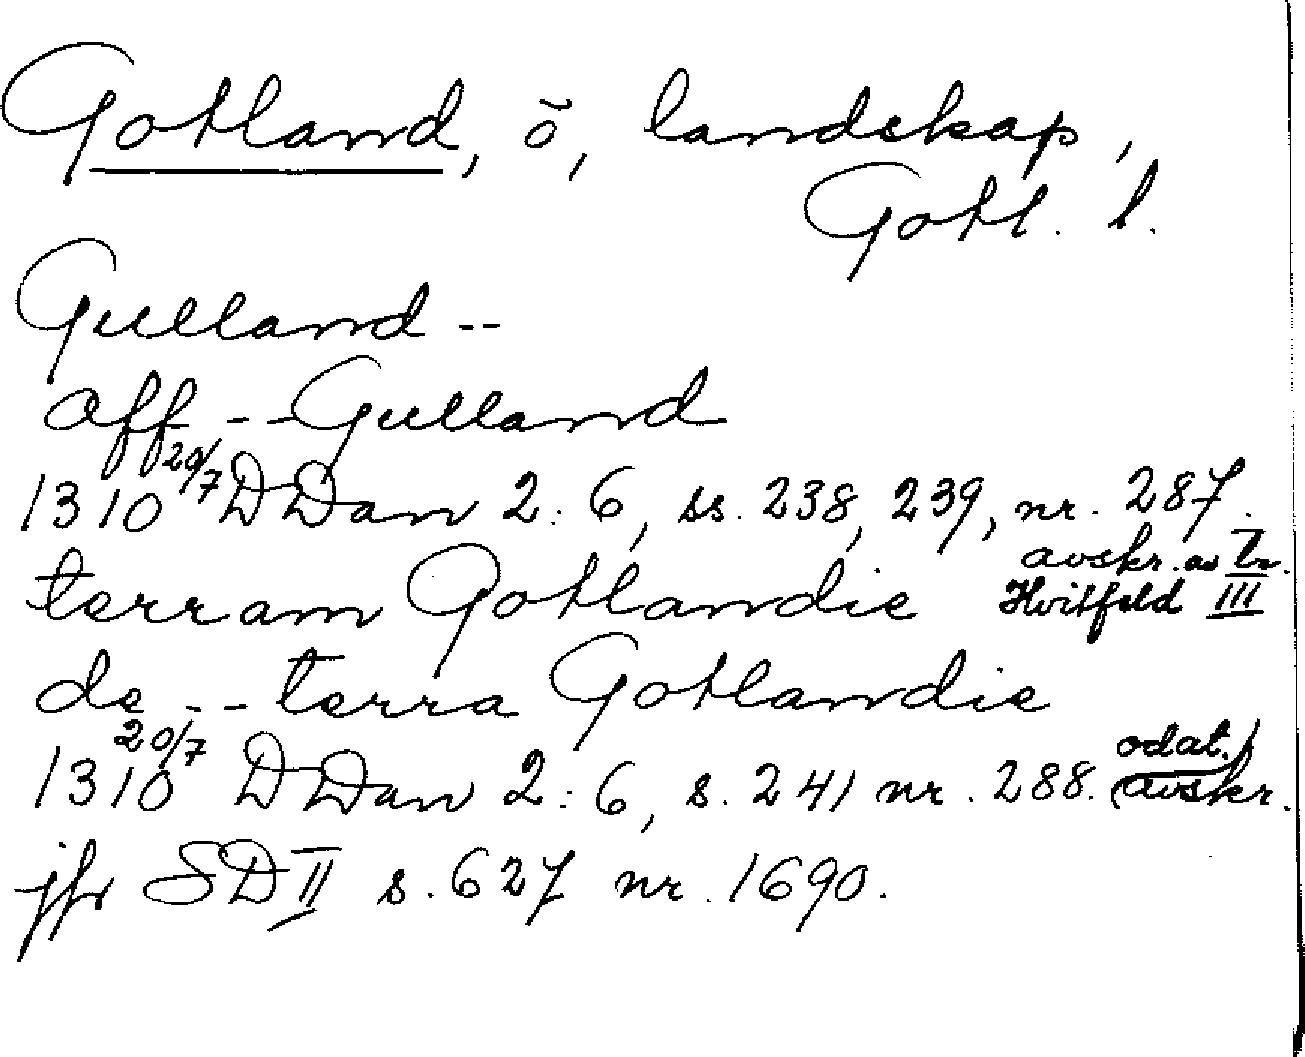 Gotland, ö, landskap,
Gotl. l.
Gulland --
aff -- Gulland
1310 20/7 DDan 2:6, ss. 238, 239, nr. 287.
avskr. av
terram Gotlandie Hvitfeld III
de -- terra Gotlandie
1310 20/7 DDan 2:6, s. 241 nr. 288. odat. avskr.
jfr SD II s. 627 nr. 1690.